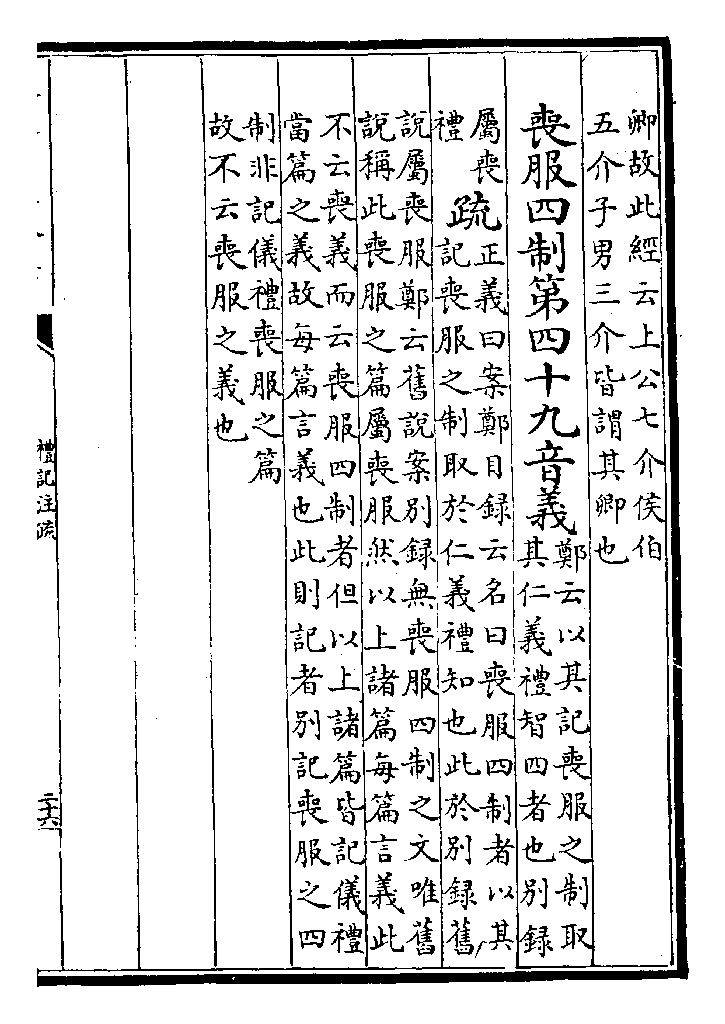 卿故此經云上公七介侯伯
五介子男三介皆謂其卿也
喪服四制第四十九音義
鄭云以其記喪服之制取
其仁義禮智四者也別録
屬喪
禮
疏
正義曰案鄭目録云名曰喪服四制者以其
記喪服之制取於仁義禮知也此於別録舊
說屬喪服鄭云舊說案別録無喪服四制之文唯舊
說稱此喪服之篇屬喪服然以上諸篇每篇言義此
不云喪義而云喪服四制者但以上諸篇皆記儀禮
當篇之義故每篇言義也此則記者別記喪服之四
制非記儀禮喪服之篇
故不云喪服之義也
禮記注疏
二十六